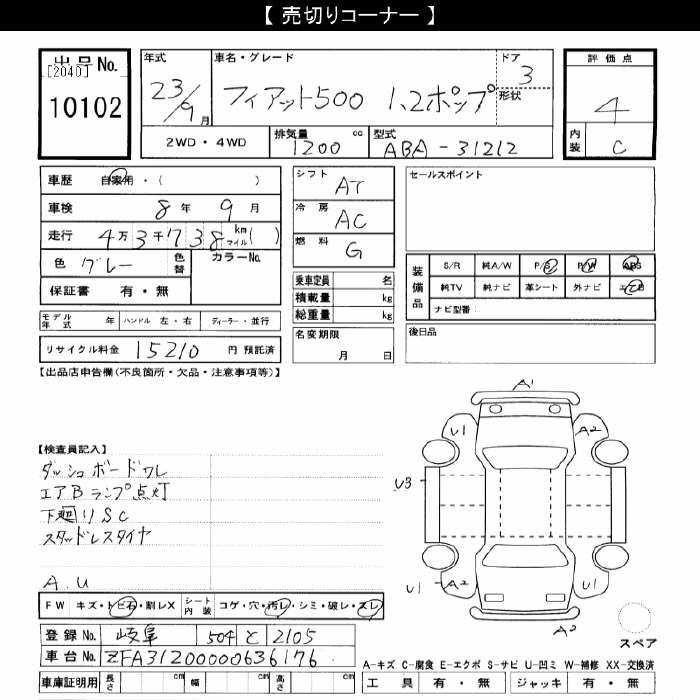 【 売切りコーナー 】
出品No.
[2040]
10102
年式
23/9月
車名・グレード
フィアット500 1.2ポップ
ドア
3
形状
評価点
4
内装
C
2WD・4WD
排気量 cc
1200
型式
ABA-31212
車歴 自家用・( )
車検 8年 9月
走行 4万3千738 km マイル( )
色 グレー 色替 カラーNo.
保証書 有・無
シフト AT
冷房 AC
燃料 G
乗車定員 名
積載量 kg
総重量 kg
名変期限
月 日
セールスポイント
装備品
S/R 純A/W P/S P/W ABS
純TV 純ナビ 革シート 外ナビ エアB
ナビ型番:
後日品
モデル年式 年 ハンドル 左・右 ディーラー・並行
リサイクル料金 15210 円 預託済
【出品店申告欄(不良箇所・欠品・注意事項等)】
【検査員記入】
ダッシュボードワレ
エアBランプ点灯
下廻りSC
スタッドレスタイヤ
A.U
FW キズ・トビ石・割レX シート内装 コゲ・穴・汚レ・シミ・破レ・スレ
登録No. 岐阜 504 と 2105
車台No. ZFA31200000636176
車庫証明用 長さ cm 幅 cm 高さ cm
A1
U1 A2
U3
U1 A2 U1
A2
スペア
A-キズ C-腐食 E-エクボ S-サビ U-凹ミ W-補修 XX-交換済
工具 有・無 ジャッキ 有・無